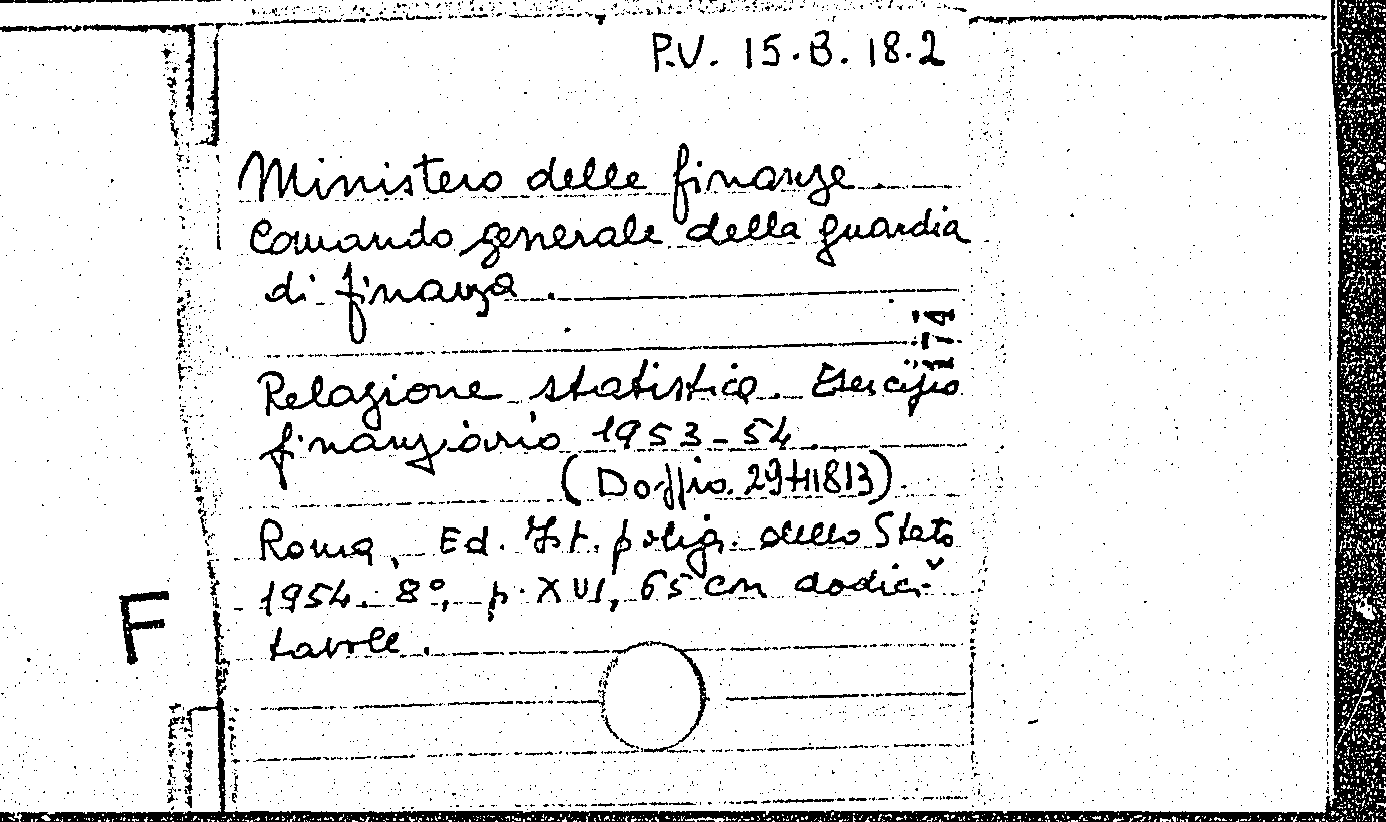 P.V. 15.B.18.2
Ministero delle finanze.
Comando generale della guardia
di finanza.
174
Relazione statistica. Esercizio
finanziario 1953-54.
(Doppio.
Roma, Ed. Ist. polig. dello Stato
1954. 8°, p. XVI, 65 con dodici
tavole.
F